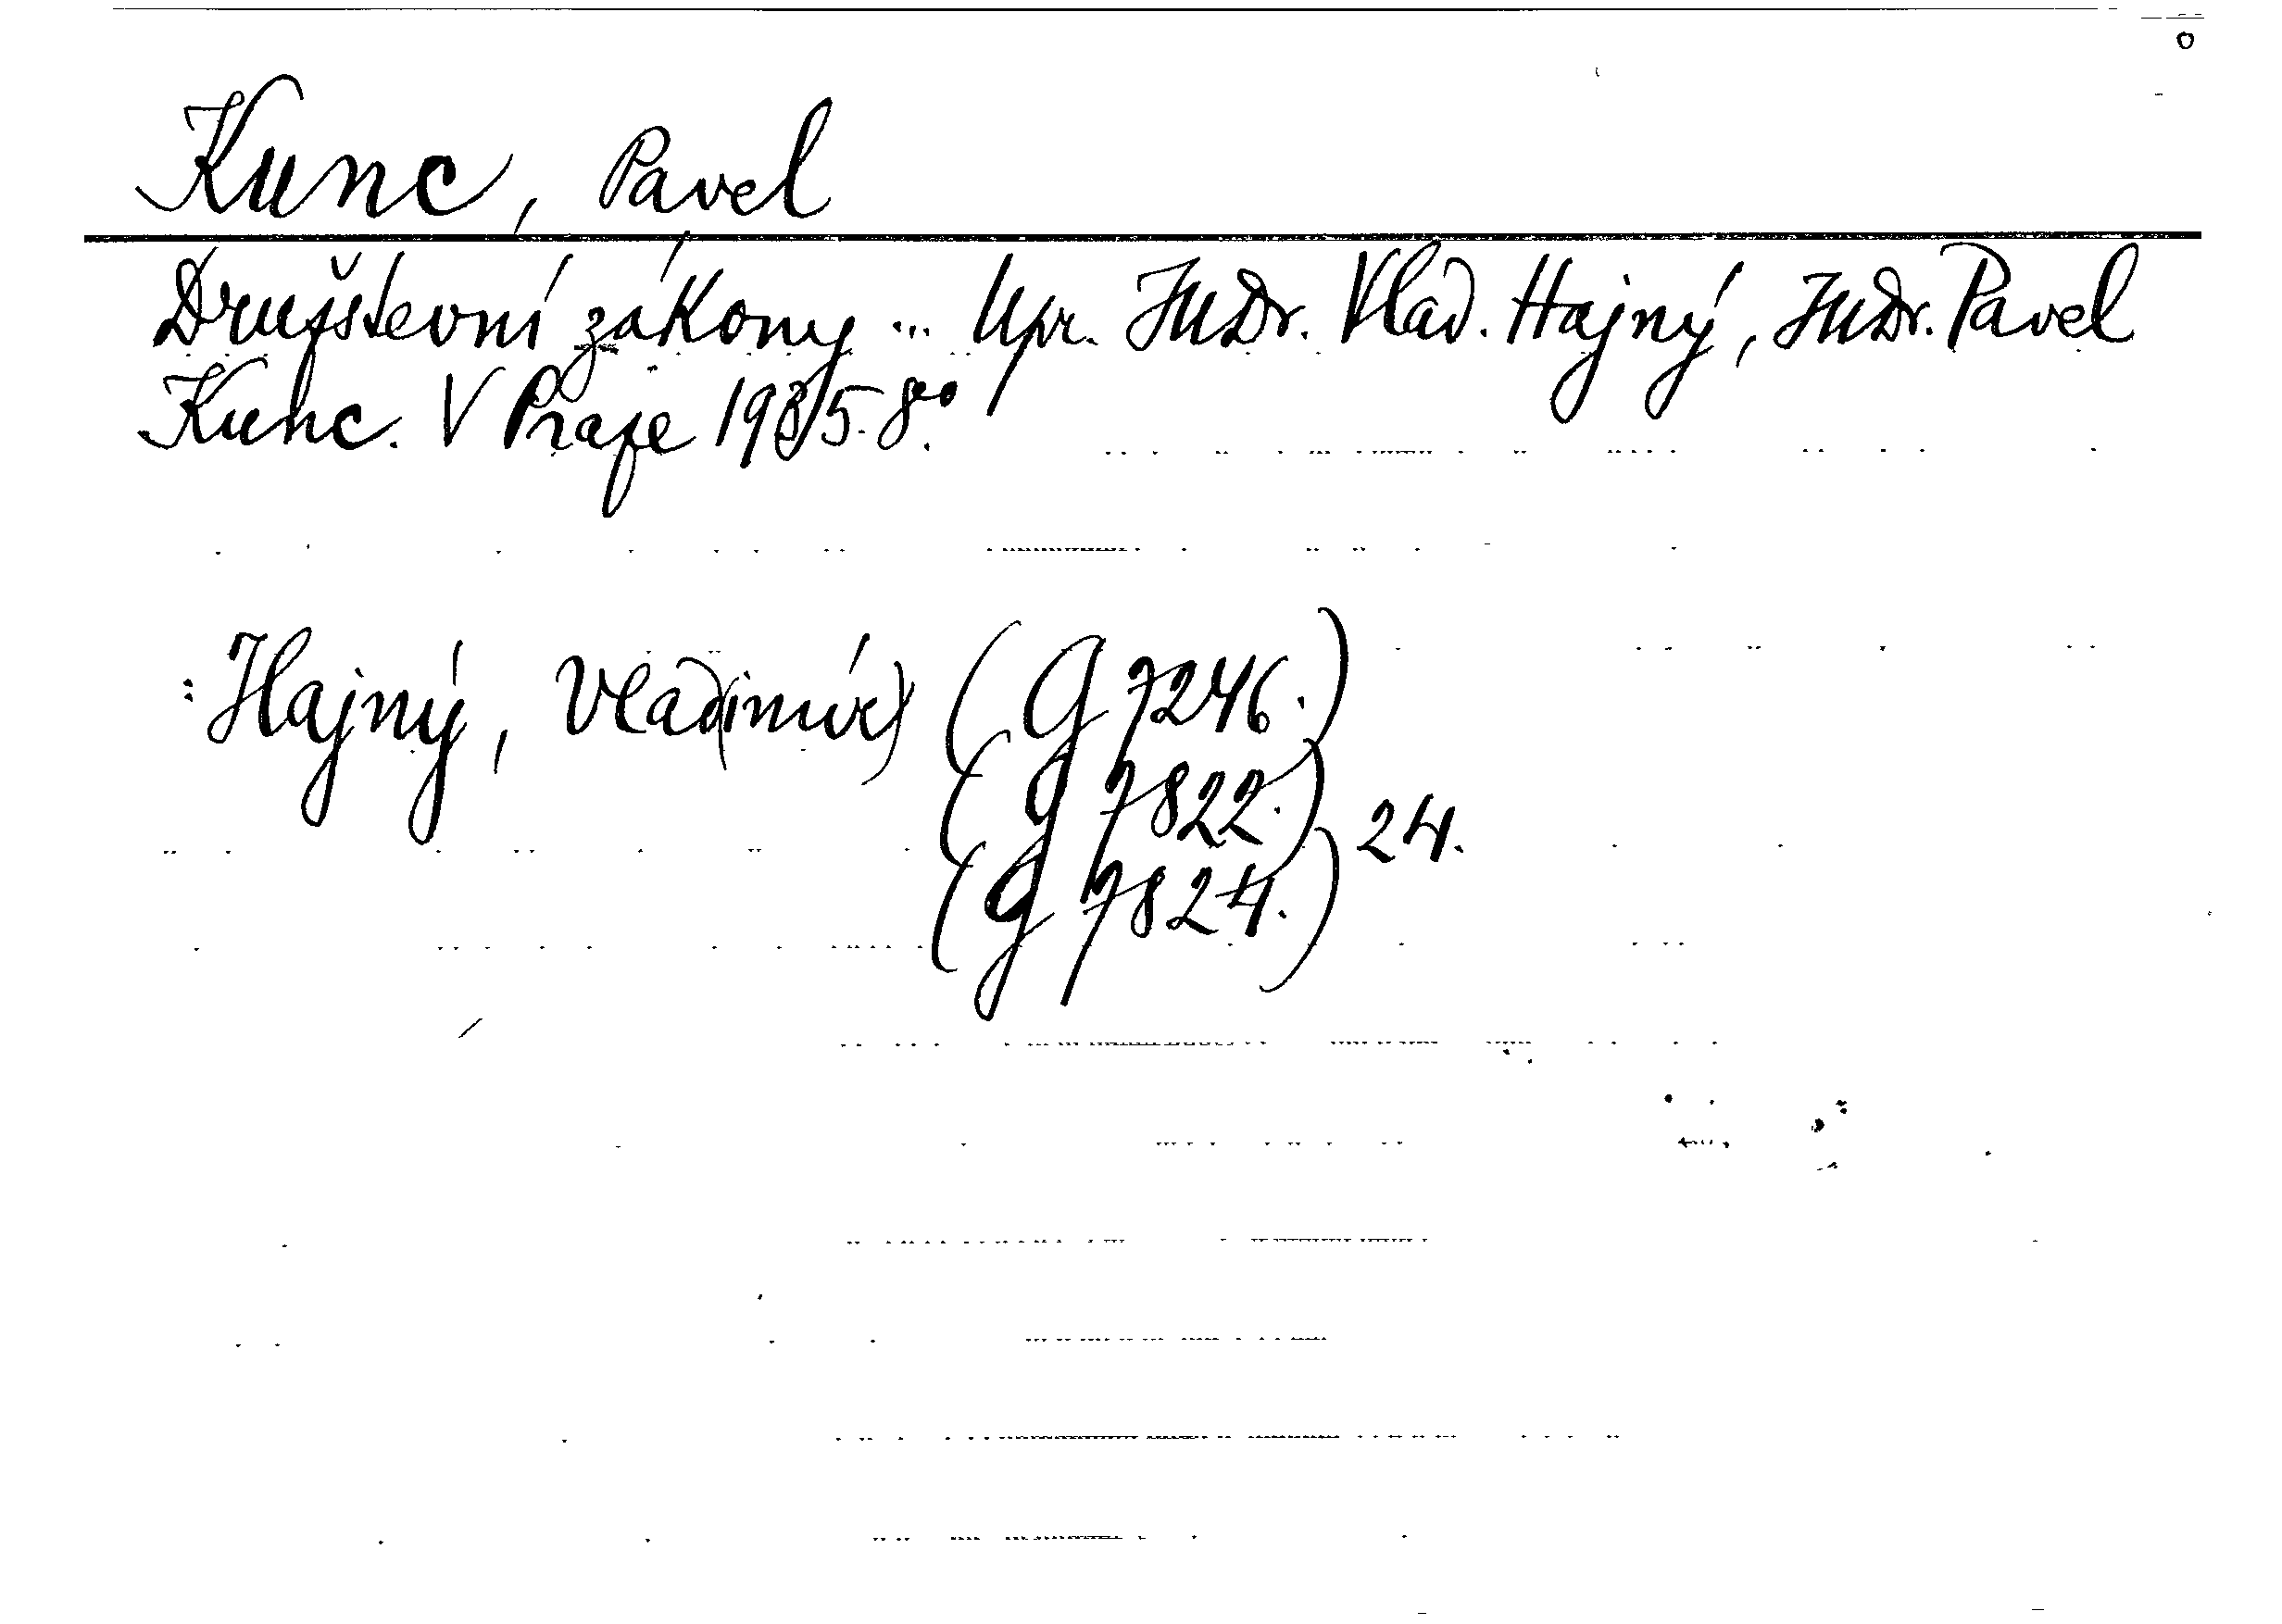 Kunc, Pavel
Družstevní zákony ... Upr. JUDr. Vlad. Hajný, JUDr. Pavel
Kunc. V Praze 1935. 8°.
: Hajný, Vlad(imír) (G 7246.)
(G 7822.) 24.
(G 7824.)